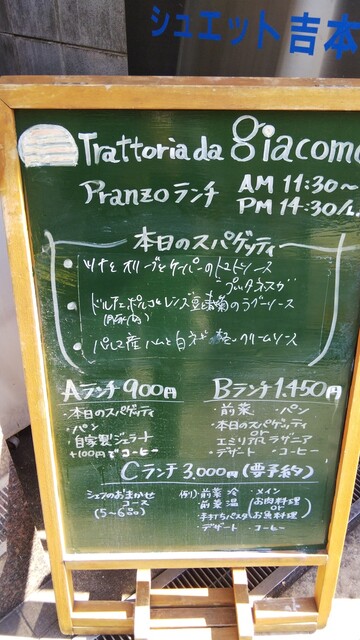 シュエット吉本
Trattoria da giacomo
Pranzo ランチ AM 11:30~
PM 14:30/L.
本日のスパゲッティ
・ツナとオリーブとケイパーのトマトソース
プッタネスカ
・ドルチェポルコとレンズ豆 のラグーソース
(豚肉)
・パルマ産ハムと白ネギ クリームソース
Aランチ 900円
・本日のスパゲッティ
・パン
・自家製ジェラート
+100円でコーヒー
Bランチ 1,450円
・前菜 ・パン
・本日のスパゲッティ
or
エミリア風ラザニア
・デザート ・コーヒー
Cランチ 3,000円(要予約)
シェフのおまかせ
コース
(5~6品)
例)・前菜 冷 ・メイン
・前菜 温 (お肉料理
or
・手打ちパスタ お魚料理)
・デザート ・コーヒー